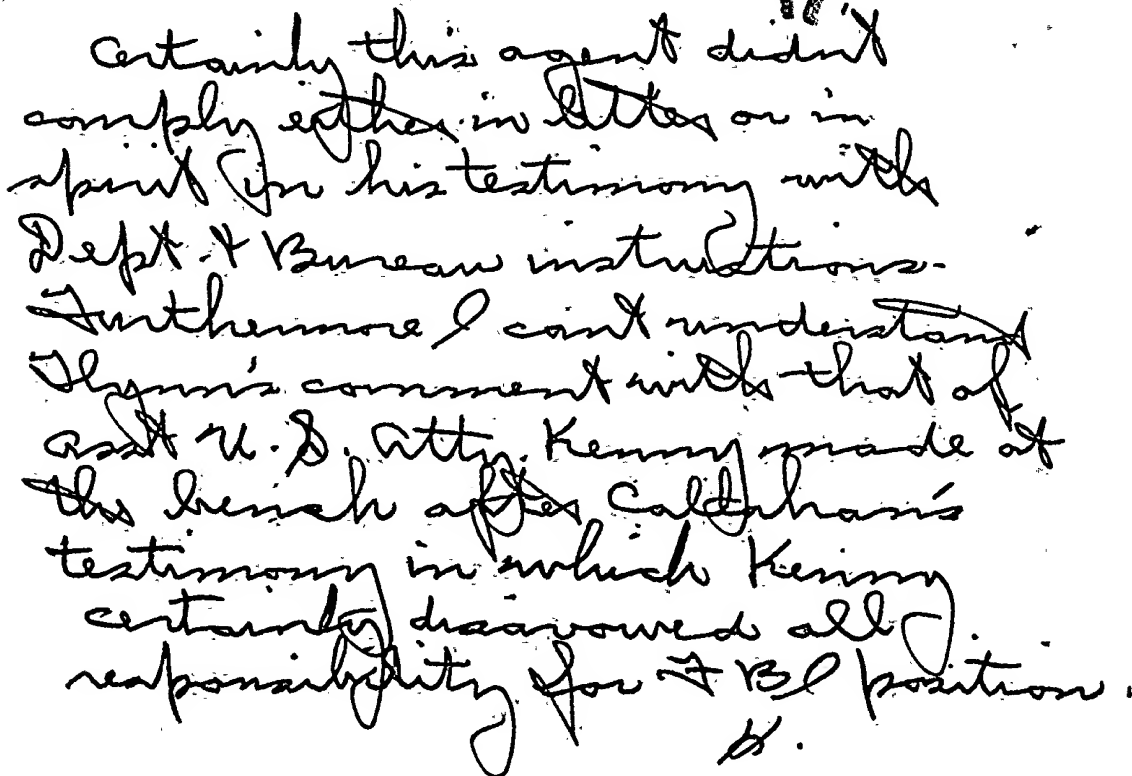 Certainly this agent didn't
comply either in letter or in
spirit in his testimony with
Dept. & Bureau instructions.
Furthermore I can't understand
Flynn's comment with that of
Asst U.S. Atty. Kenny made at
the bench after Callahan's
testimony in which Kenny
certainly disavowed all
responsibility for FBI position.
H.